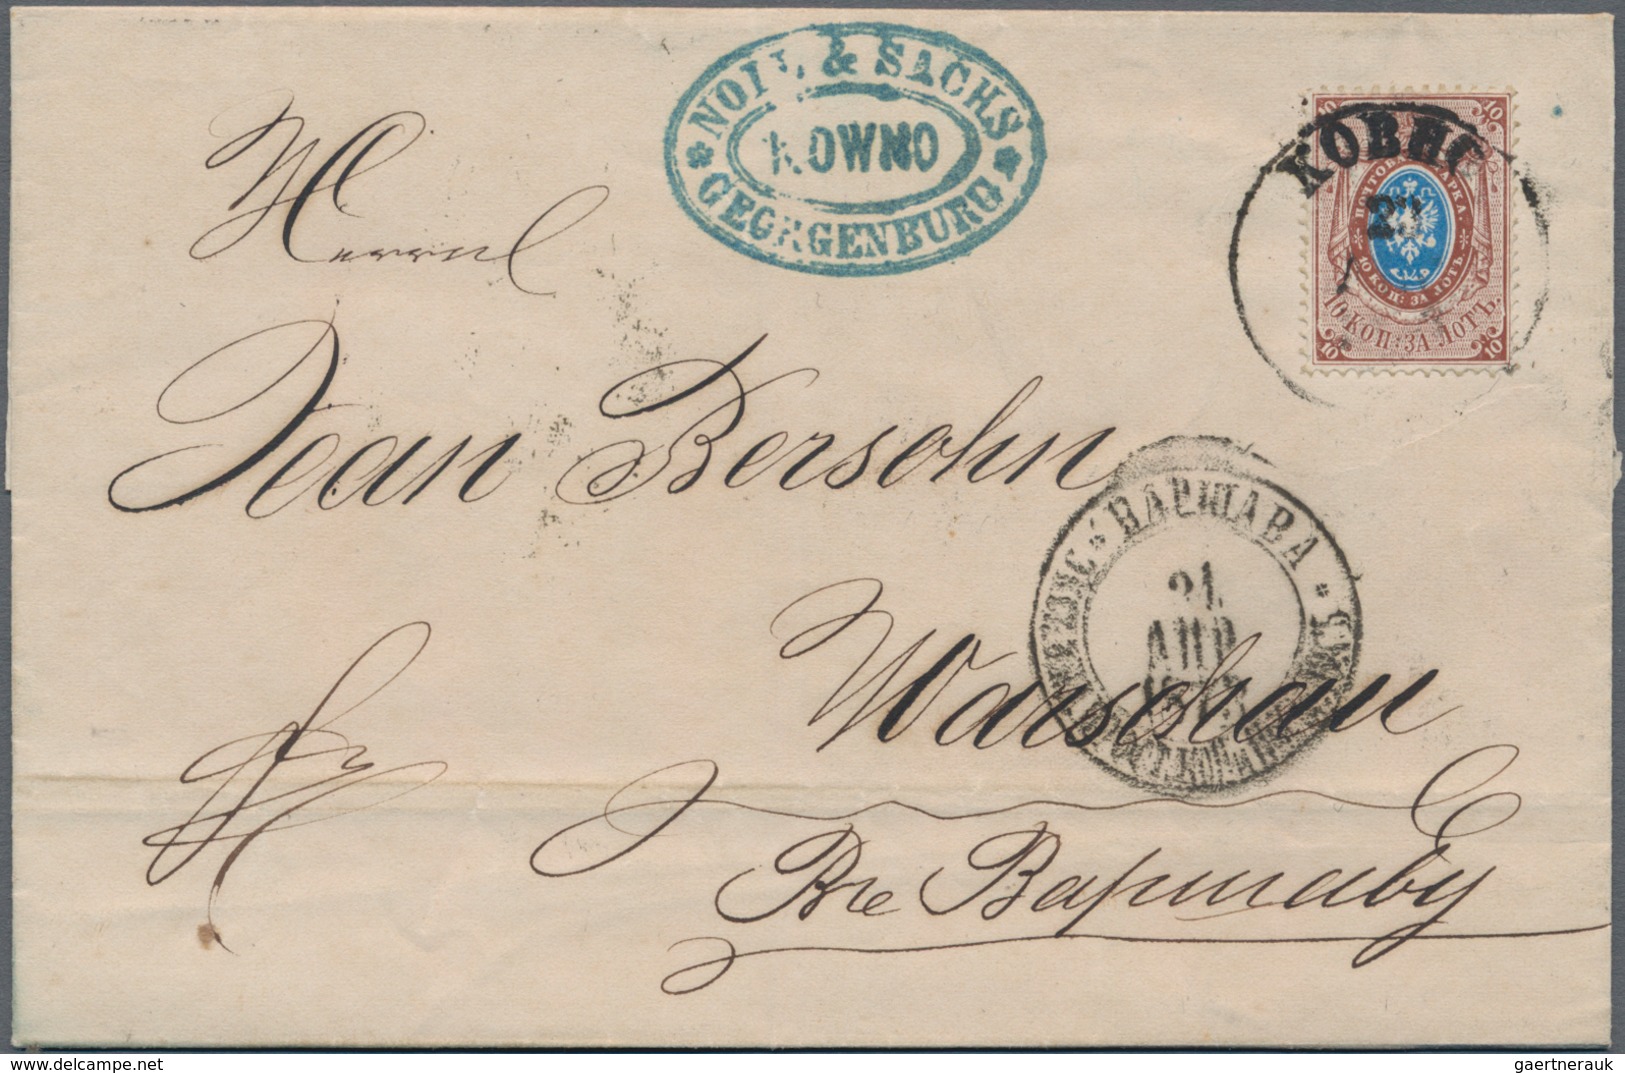 & SACHS
KOWNO
GEORGENBURG
КОВНО
10 10
МАРКА
10 КОП: ЗА ЛОТЪ
10 КОП: ЗА ЛОТЪ.
10 10
Herrn
Jean Bersohn
ВАРШАВА
21
АПР
Warschau
Въ Варшаву
gaertnerauk